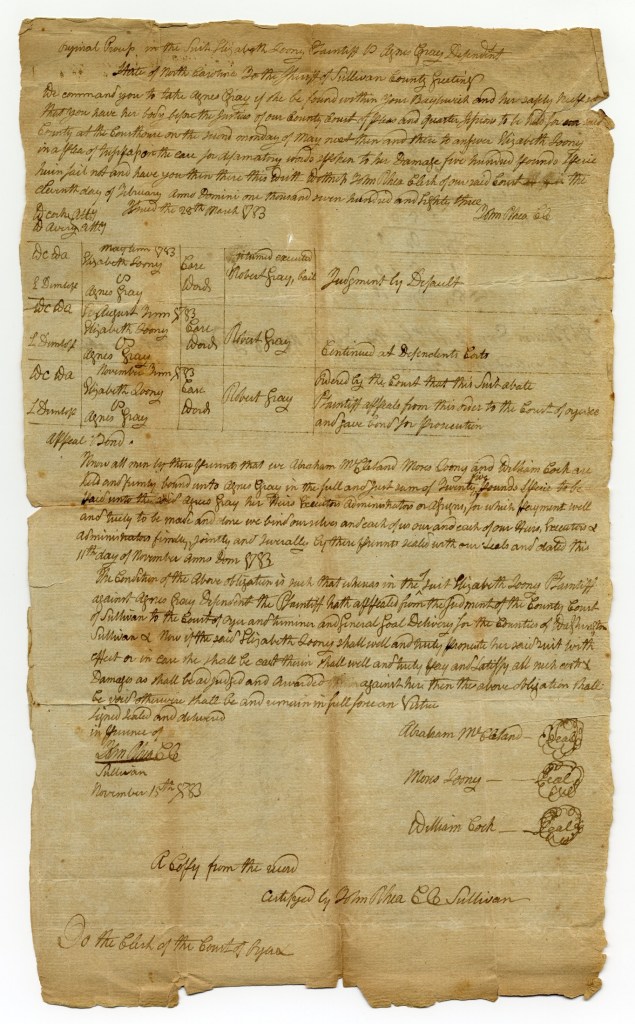 original Process in the Suit Elizabeth Loony Plaintiff vs Agnes Gray Defendant
State of North Carolina To the Sheriff of Sullivan County Greeting
We command you to take Agnes Gray if she be found within Your Bayliwick and her safely keep so
that you have her body before the Justices of our County Court of pleas and quarter sessions to be held for our said
County at the Courthouse on the second monday of May next then and there to answer Elizabeth Loony
in a plea of trespass on the case for Defamatory words spoken to her Damage five hundred pounds specie
herein fail not and have you then there this writ Witness John Rhea Clerk of our said Court the
eleventh day of February Anno Domini one thousand seven hundred and Eighty three
Issued the 28th March 1783 John Rhea CC
W Cocke Atty
W Avery Atty
Wc Wa
L Dunlop
May term 1783
Elizabeth Loony
vs
Agnes Gray
Case
Words
returned executed
Robert Gray, Bail
Judgment by Default
Wc Wa
L Dunlop
August Term 1783
Elizabeth Loony
vs
Agnes Gray
Case
Words
Robert Gray
Continued at Defendents Costs
Wc Wa
L Dunlop
November Term 1783
Elizabeth Loony
vs
Agnes Gray
Case
Words
Robert Gray
Ordered by the Court that this Suit abate
Plaintiff appeals from this order to the Court of oyer &c
and gave bond for prosecution
Appeal Bond.
Know all men by these presents that we Abraham McCleland Moses Loony and William Cock are
held and firmly bound unto Agnes Gray in the full and Just sum of Twenty pounds specie to be
paid unto the said Agnes Gray her Heirs Executors Administrators or Assigns, for which payment well
and truly to be made and done we bind ourselves and each of us our and each of our Heirs, Executors &
administrators firmly, Jointly, and severally by these presents sealed with our Seals and dated this
11th day of November Anno Dom 1783
The Condition of the Above obligation is such that whereas in the Suit Elizabeth Loony Plaintiff
against Agnes Gray Defendent the Plaintiff hath appealed from the Judment of the County Court
of Sullivan to the Court of Oyer and terminer and General Goal Delivery for the Counties of Washington
Sullivan & Now if the said Elizabeth Looney shall well and truly prosecute her said suit with
effect or in case she shall be cast therein shall well and truly pay and satisfy all such cost &
Damages as shall be adjudged and awarded against her then the above obligation shall
be void otherwise shall be and remain in full force an Virtue
Signed sealed and delivered
in presence of
John Rhea CC
Sullivan
November 15th 1783
Abraham McCleland — Seal
Moses Loony — Seal
William Cock — Seal
A Coppy from the record
Certifyed by John Rhea CC Sullivan
To the Clerk of the Court of Oyer &